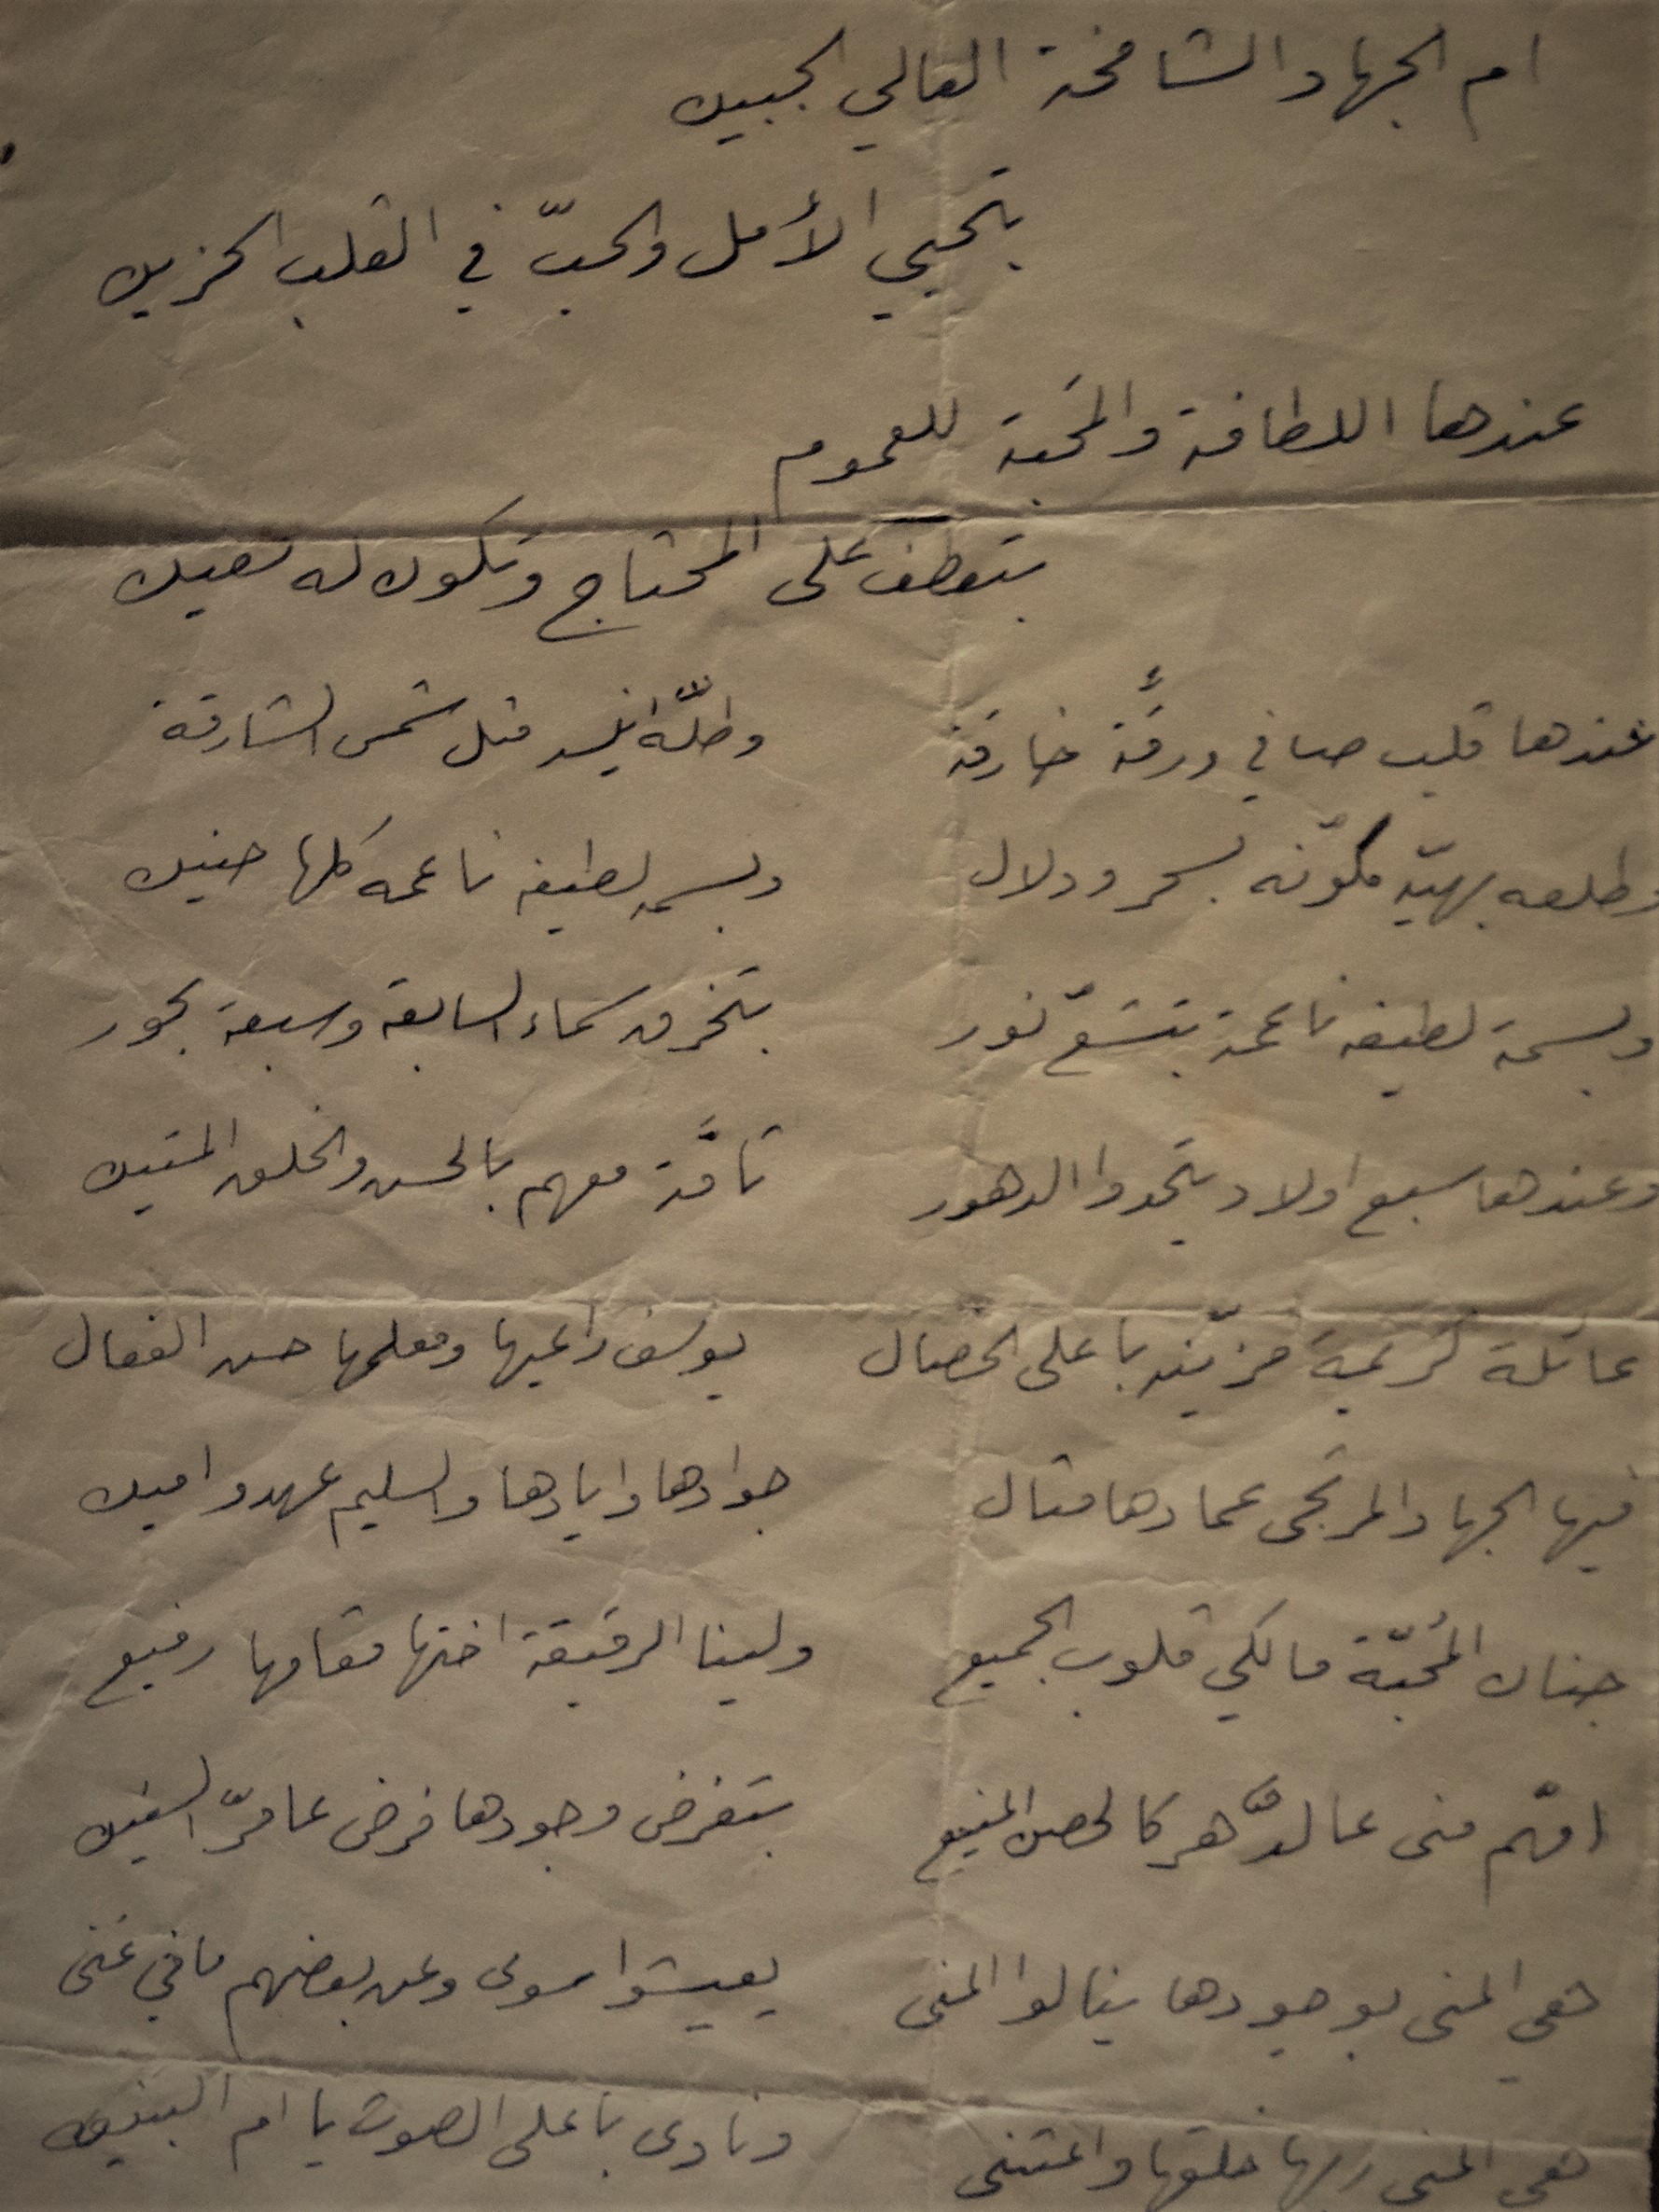 ام الجهاد الشامخة العالي الجبين
بتحيي الأمل والحبّ في القلب الحزين
عندها اللطافة والمحبة للعموم
بتعطف على المحتاج وتكون له معين
عندها قلب صافي ورقَّة خارقة وطلّة انيسه متل شمس الشارقة
وطلعه بهيّه مكوّنه بسحر ودلال وبسمه لطيفه ناعمه كلها حنين
وبسمة لطيفه ناعمة بتشعّ نور بتخرق سماء السابعة وسبعة بحور
وعندها سبع اولاد بتحدوا الدهور تامَّة معهم بالحسن والخلق المتين
عائلة كريمة مزيّنه باعلى الخصال يوسف راعيها ومعلمها حسن الفعال
فيها الجهاد المرتجى عمادها متال جوادها وايادها والسليم عهدو امين
جنان المُحبّة مالكي قلوب الجميع ولينا الرقيقة اختها مقامها رفيع
امّهم منى عالدَّهر كالحصن المنيع بتفرض وجودها فرض عا مرّ السنين
هي المنى بوجودها ينالوا المنى يعيشوا سوى وعن بعضهم ما في غنى
هي المنى ربها خلقها واعتنى ونادى باعلى الصوت يا ام البنين